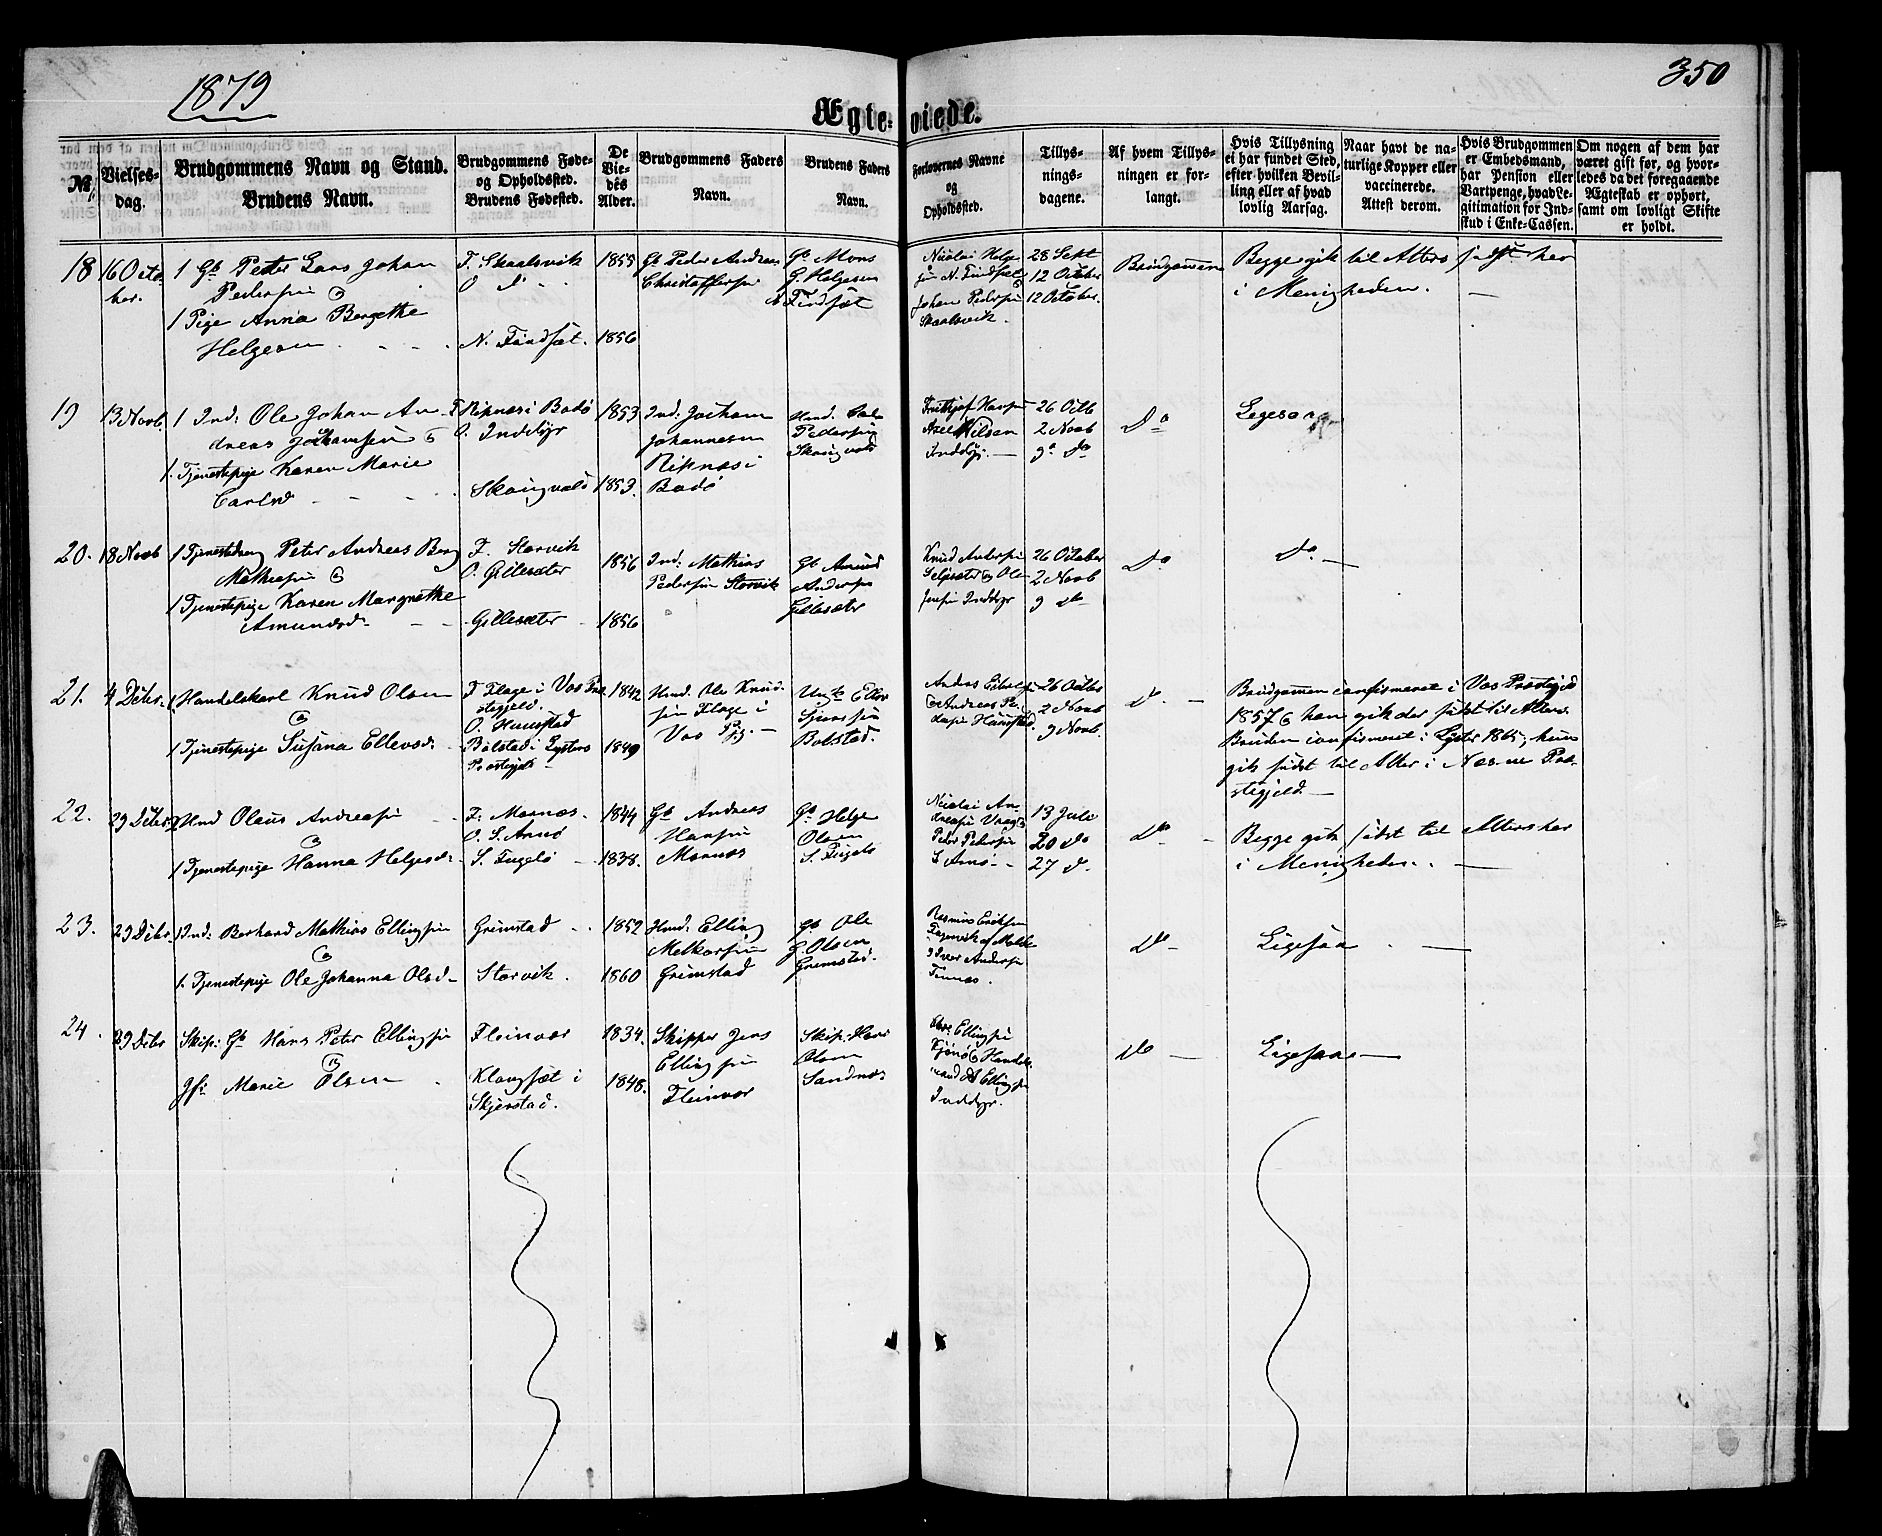 1879
350
Ægte-viede.
№
Vielses-
dag.
Brudgommens Navn og Stand.
Brudens Navn.
Brudgommens Føde-
og Opholdssted.
Brudens Fødested.
De
Vie-
des
Alder.
Brudgommens Faders
Navn.
Brudens Faders
Navn.
Forlovernes Navne
og
Opholdssted.
Tillys-
nings-
dagene.
Af hvem Tillys-
ningen er for-
langt.
Hvis Tillysning
ei har fundet Sted,
efter hvilken Bevil-
ling eller af hvad
lovlig Aarsag.
Naar havt de na-
turlige Kopper eller
vaccinerede.
Attest derom.
Hvis Brudgommen
er Embedsmand,
har Pension eller
Vartpenge, hvad Le-
gitimation for Ind-
skud i Enke-Cassen.
Om nogen af dem har
været gift før, og hvor-
ledes da det foregaaende
Ægteskab er ophørt,
samt om lovligt Skifte
er holdt.
18 16 Octo-
ber.
1 Gb Peder Lars Johan
Pedersen
1 Pige Anna Bergethe
Helgesen
F. Skaalsvik
O d
N. Findsæt.
1855
1856
Gb Peder Andreas
Christoffersen
Gb Mons
G. Helgesen
N. Findsæt
Nicolai Helge-
sen N. Findsæt
Johan Pedersen
Skaalsvik.
28 Sept
12 October
12 October.
Brudgommen
Begge gik til Alters sidst her
i Menigheden.
19 13 Novb.
1 Ind: Ole Johan An-
dreas Jochumsen
1. Tjenestepige Karen Marie
Carlsd
F. Ripnæs i Bodø
O. Inddyr
Skaugvold
1853
1853.
Ind: Jocham
Johannesen
Ripnæs i
Bodø
Hmd. Carl
Pedersen
Skaugvold
Fridtjof Hansen
Axel Nilsen
Inddyr.
26 Octb
2 Novb
9 do
Do
Ligesaa
20. 18 Novb
1 Tjenestedreng Peter Andreas Berg
Mathiasen
1 Tjenestepige Karen Margrethe
Amundsd
F. Storvik
O. Gillesæter
Gillesæter
1856
1856
Ind: Mathias
Pedersen Storvik
Gb Amund
Andersen
Gillesæter
Knud Andersen
Gilesæter og Ole
Jensen Inddyr
26 October
2 Novb
9 do
Do
Do
21. 4 Dcbr.
1 Handelskarl Knud Olsen
1 Tjenestepige Susana Ellevsd.
F Flage i Vos Præ-
stegjeld.
O. Haustad
Bolstad i Lysters
Præstegjeld
1842
1849
Hmd. Ole Knud-
sen Flage i
Vos
Ellev
Bolstad.
Andreas
Haustad.
26 Octbr
2 Novb
9 Novb.
d.
Brudgommen confirmeret i Vos Præstegjeld
1857 og han gik der sidst til Alters.
Bruden confirmeret i Lyster 1865; hun
gik sidst til Alter i Næs-ne Præ-
stegjeld.
22. 29 Dcbr.
Hmd Olaus Andreasen
1 Tjenestepige Hanna Helgesd.
F. Mornæs
O. S. Arnø
S. Fugelø
1844
1838.
Gb Andreas
Hansen
Mornæs
Gb Helge
Olsen
S. Fugelø
Nicolai An-
dreasen
Peter Pedersen
S Arnø
13 Juli
20 do
27 d.
Do
Begge gik sidst til Alters her
i Menigheden.
23. 29 Dcbr.
1 Ind: Berhard Mathias Ellingsen
1. Tjenestepige Ole Johanna Olsd
Grimstad
Storvik.
1852
1860
Hmd. Elling
Melkersen
Grimstad
Gb Ole
G. Olsen
Grimstad.
Rasmus Eriksen
Andersen
Finnæs.
Do
Ligesaa
24. 29 Dcbr
Skip: Gb Hans Peter Ellingsen
Marie Olsen
Fleinvær
Klangsæt i
Skjerstad.
1834.
1848.
Skipper Jens
Ellingsen
Fleinvær
Skip. Hans
Olsen
Sandnæs
Ellingsen
Kjønø og Handels-
mand A Ellingsen
Inddyr.
Do
Ligesaa